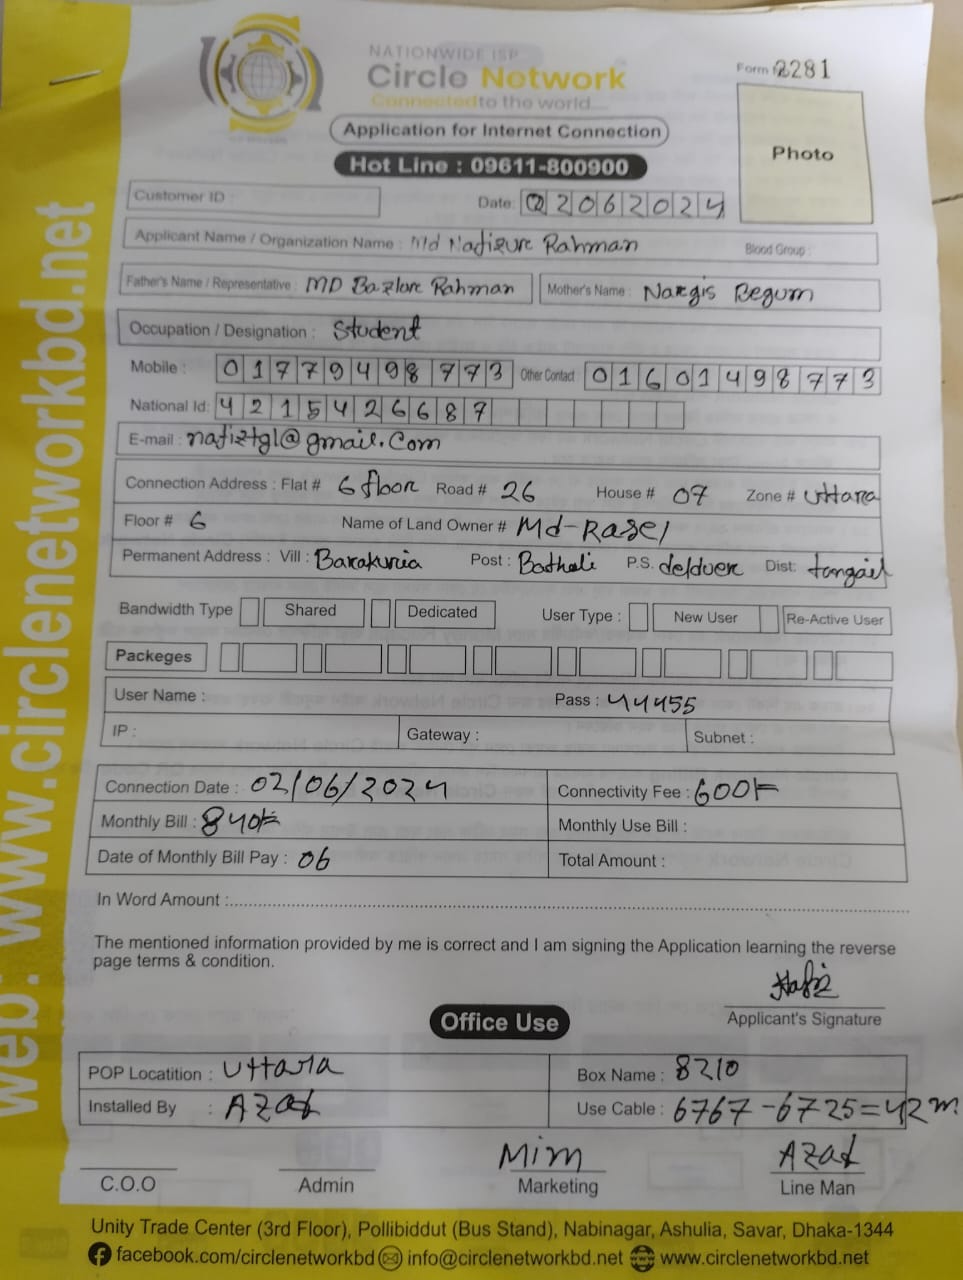 NATIONWIDE ISP
Circle Network
Connected to the world....
Form 2281
Application for Internet Connection
Hot Line : 09611-800900
Photo
Customer ID :
Date: 02062024
Applicant Name / Organization Name : Md Nafizure Rahman Blood Group :
Father's Name / Representative : MD Bazlore Rahman Mother's Name : Nargis Begum
Occupation / Designation : Student
Mobile : 01779498773 Other Contact : 01601498773
National Id: 4215426687
E-mail : nafiztgl@gmail.com
Connection Address : Flat # 6 floor Road # 26 House # 07 Zone # Uttara
Floor # 6 Name of Land Owner # Md-Rasel
Permanent Address : Vill : Barakuria Post : Batholi P.S. delduer Dist: tangail
Bandwidth Type Shared Dedicated User Type : New User Re-Active User
Packeges
User Name : Pass : 44455
IP : Gateway : Subnet :
Connection Date : 02/06/2024 Connectivity Fee : 600/=
Monthly Bill : 840/= Monthly Use Bill :
Date of Monthly Bill Pay : 06 Total Amount :
In Word Amount :
The mentioned information provided by me is correct and I am signing the Application learning the reverse
page terms & condition.
Nafiz
Applicant's Signature
Office Use
POP Locatition : Uttara Box Name : 8210
Installed By : Azad Use Cable : 6767 - 6725 = 42 m
Mim Azad
C.O.O Admin Marketing Line Man
Unity Trade Center (3rd Floor), Pollibiddut (Bus Stand), Nabinagar, Ashulia, Savar, Dhaka-1344
facebook.com/circlenetworkbd info@circlenetworkbd.net www.circlenetworkbd.net
web: www.circlenetworkbd.net